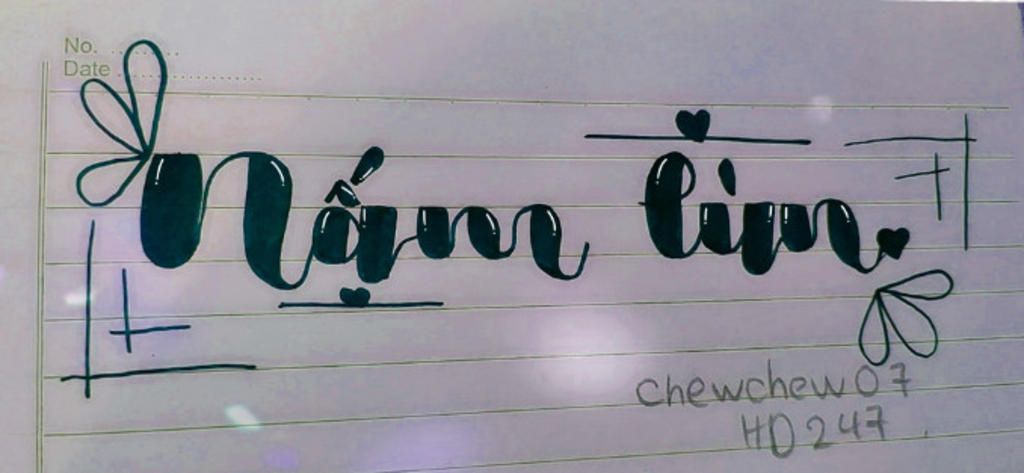 No. ........
Date ....................
Nấm lùn
chewchew07
HD247